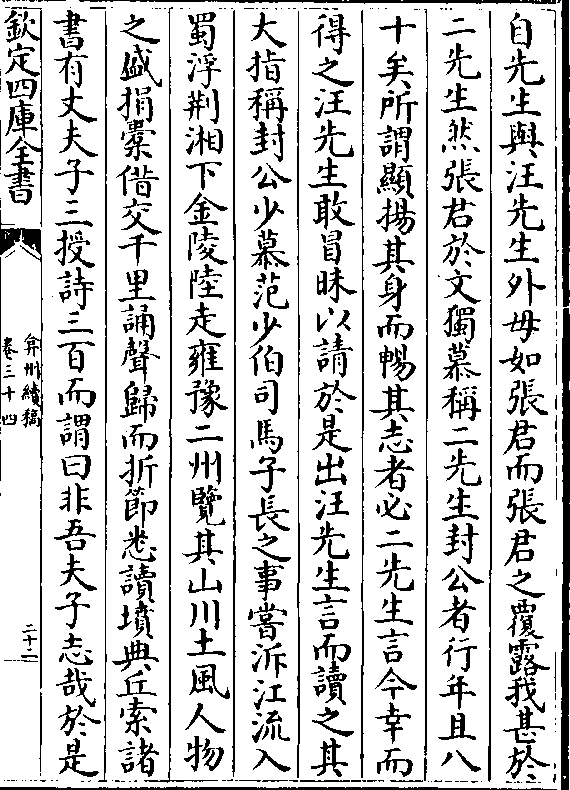 自先生與汪先生外毋如張君而張君之覆露我甚於
二先生然張君於文獨慕稱二先生封公者行年且八
十矣所謂顯揚其身而暢其志者必二先生言今幸而
得之汪先生敢冒昧以請於是出汪先生言而讀之其
大指稱封公少慕范少伯司馬子長之事嘗泝江流入
蜀浮荆湘下金陵陸走雍豫二州覽其山川土風人物
之盛捐槖借交千里誦聲歸而折節悉讀墳典丘索諸
書有丈夫子三授詩三百而謂曰非吾夫子志哉於是
欽定四庫全書
弇州續稿
卷三十四
二十二